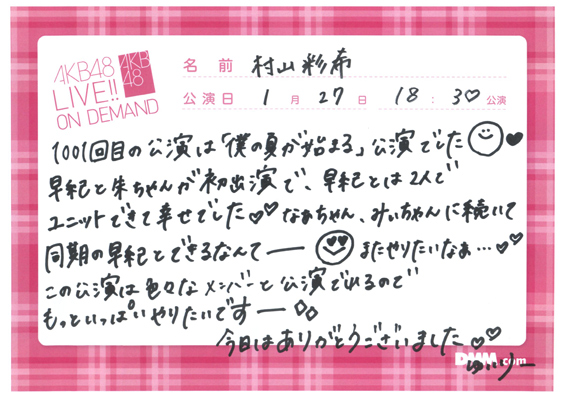 AKB48
LIVE!!
ON DEMAND
AKB
48
名前 村山彩希
公演日 1月27日 18:30公演
1001回目の公演は「僕の夏が始まる」公演でした
早紀と朱ちゃんが初出演で、早紀とは2人で
ユニットできて幸せでした♡♡ なぁちゃん、みぃちゃんに続いて
同期の早紀とできるなんてー またやりたいなぁ…♡♡
この公演は色々なメンバーと公演でれるので
もっといっぱいやりたいですー◇◇
今日はありがとうございました♡♡
DMM.com
ゆいりー